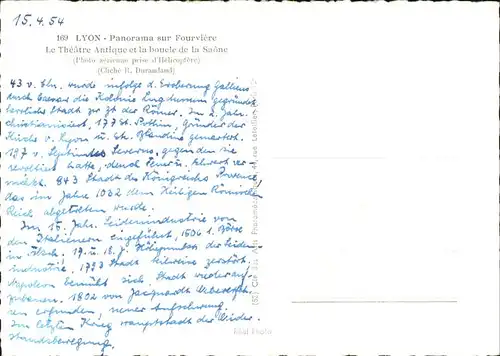 15.4.54
169 LYON - Panorama sur Fourvière
Le Théâtre Antique et la boucle de la Saône
(Photo aérienne prise d'Hélicoptère)
(Cliché R. Durandaud)
43 v. Chr. wurde infolge d. Eroberung Galliens
durch Caesar die Kolonie Lugdunum gegründet
herrlichste Stadt zur Zt der Römer. Im 2. Jahr.
christianisiert, 177 St. Pothin, Gründer der
Kirche v. Lyon u. St. Blandine gemartert.
197 v. Septimus Severus, gegen den sie
revoltiert hatte, durch Feuer u. Schwert ver-
nichtet. 843 Stadt des Königreichs Provence,
das im Jahre 1032 dem Heiligen Römischen
Reich abgetreten wurde.
Im 15. Jahr. Seidenindustrie von
den Italienern eingeführt, 1506 1. Börse
in Frkch; 17. u. 18. J. Höhepunkt der Seiden-
industrie, 1793 Stadt teilweise zerstört.
Napoleon bemüht sich, Stadt wiederauf-
zubauen. 1802 von Jacquardt Webever-
erfunden, neuer Aufschwung.
Im letzten Krieg Hauptstadt der Wider-
standsbewegung.
Réal Photo